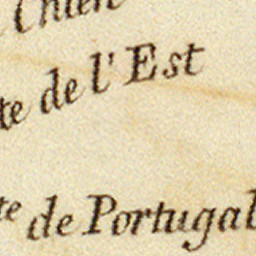 Chien
te de l'Est
te de Portugal